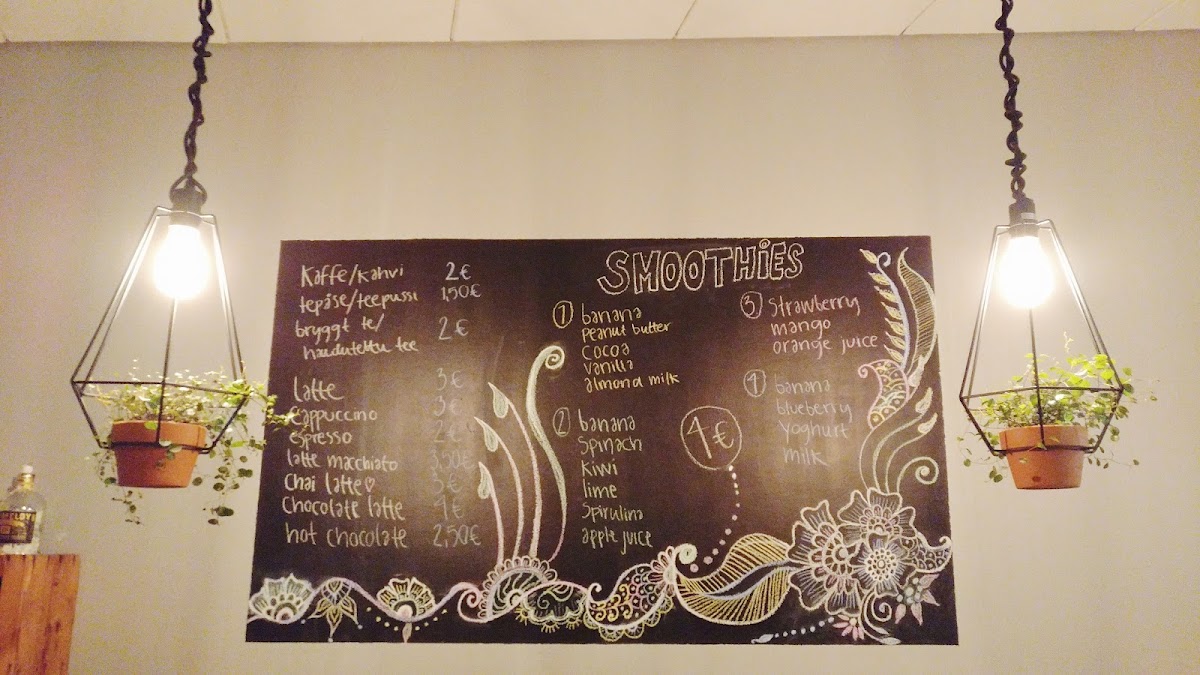 Kaffe/kahvi 2€
tepåse/teepussi 1,50€
bryggt te/ 2€
haudutettu tee
latte 3€
cappuccino 3€
espresso 2€
latte macchiato 3,50€
Chai latte♡ 3€
Chocolate latte 4€
hot chocolate 2,50€
SMOOTHiES
1 banana
Peanut butter
Cocoa
Vanilla
almond milk
2 banana
Spinach
Kiwi
lime
Spirulina
apple juice
3 Strawberry
mango
orange juice
4 banana
blueberry
Yoghurt
milk
4€